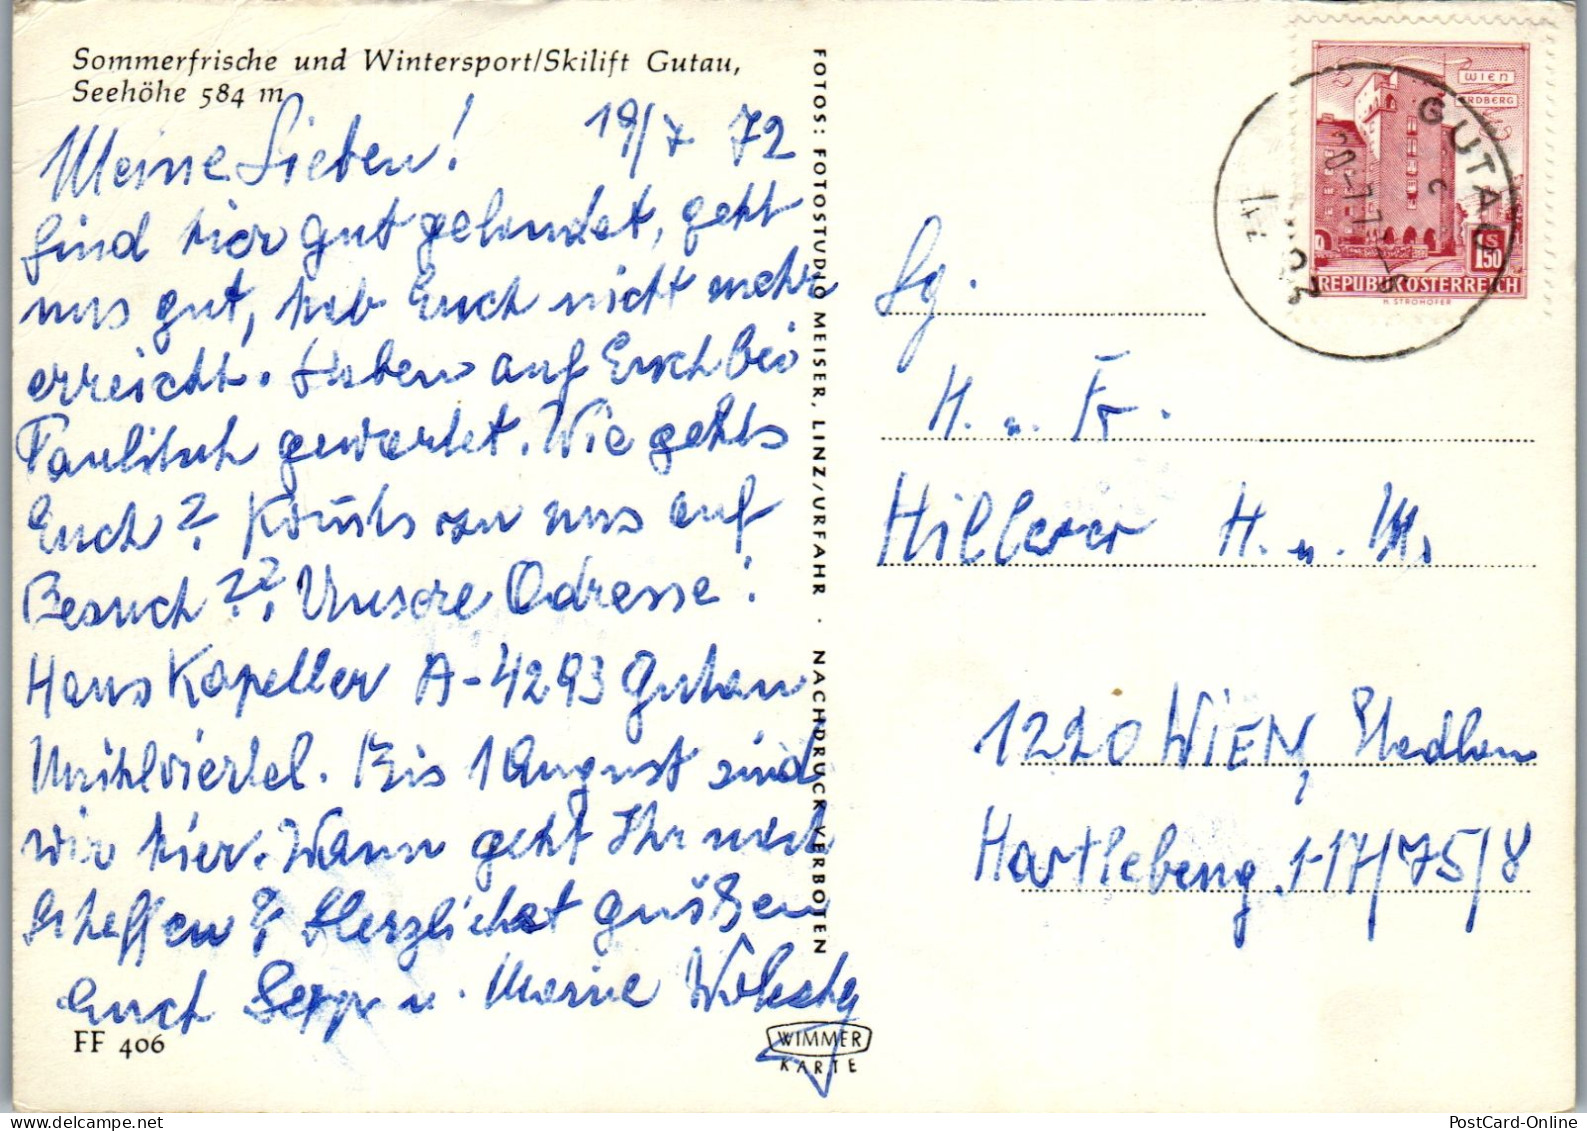 Sommerfrische und Wintersport/Skilift Gutau,
Seehöhe 584 m
19/7 72
Meine Lieben!
Sind hier gut gelandet, geht
uns gut, hab Euch nicht mehr
erreicht. Haben auf Euch bei
gewartet. Wie gehts
Euch? Kommts zu uns auf
Besuch??, Unsere Adresse:
Hans Kapeller A-4293 Gutau
Mühlviertel. Bis 1 August sind
wir hier. Wann geht Ihr nach
Herzlichst grüßen
Euch Sepp u.
FF 406
WIMMER
KARTE
FOTOS: FOTOSTUDIO MEISER, LINZ/URFAHR · NACHDRUCK VERBOTEN
WIEN
ERDBERG
S
1.50
REPUBLIK ÖSTERREICH
H. STROHOFER
GUTAU
c
Sg.
H. u. Fr.
H. u. M.
1220 WIEN, Stadlau
1-17/75/8